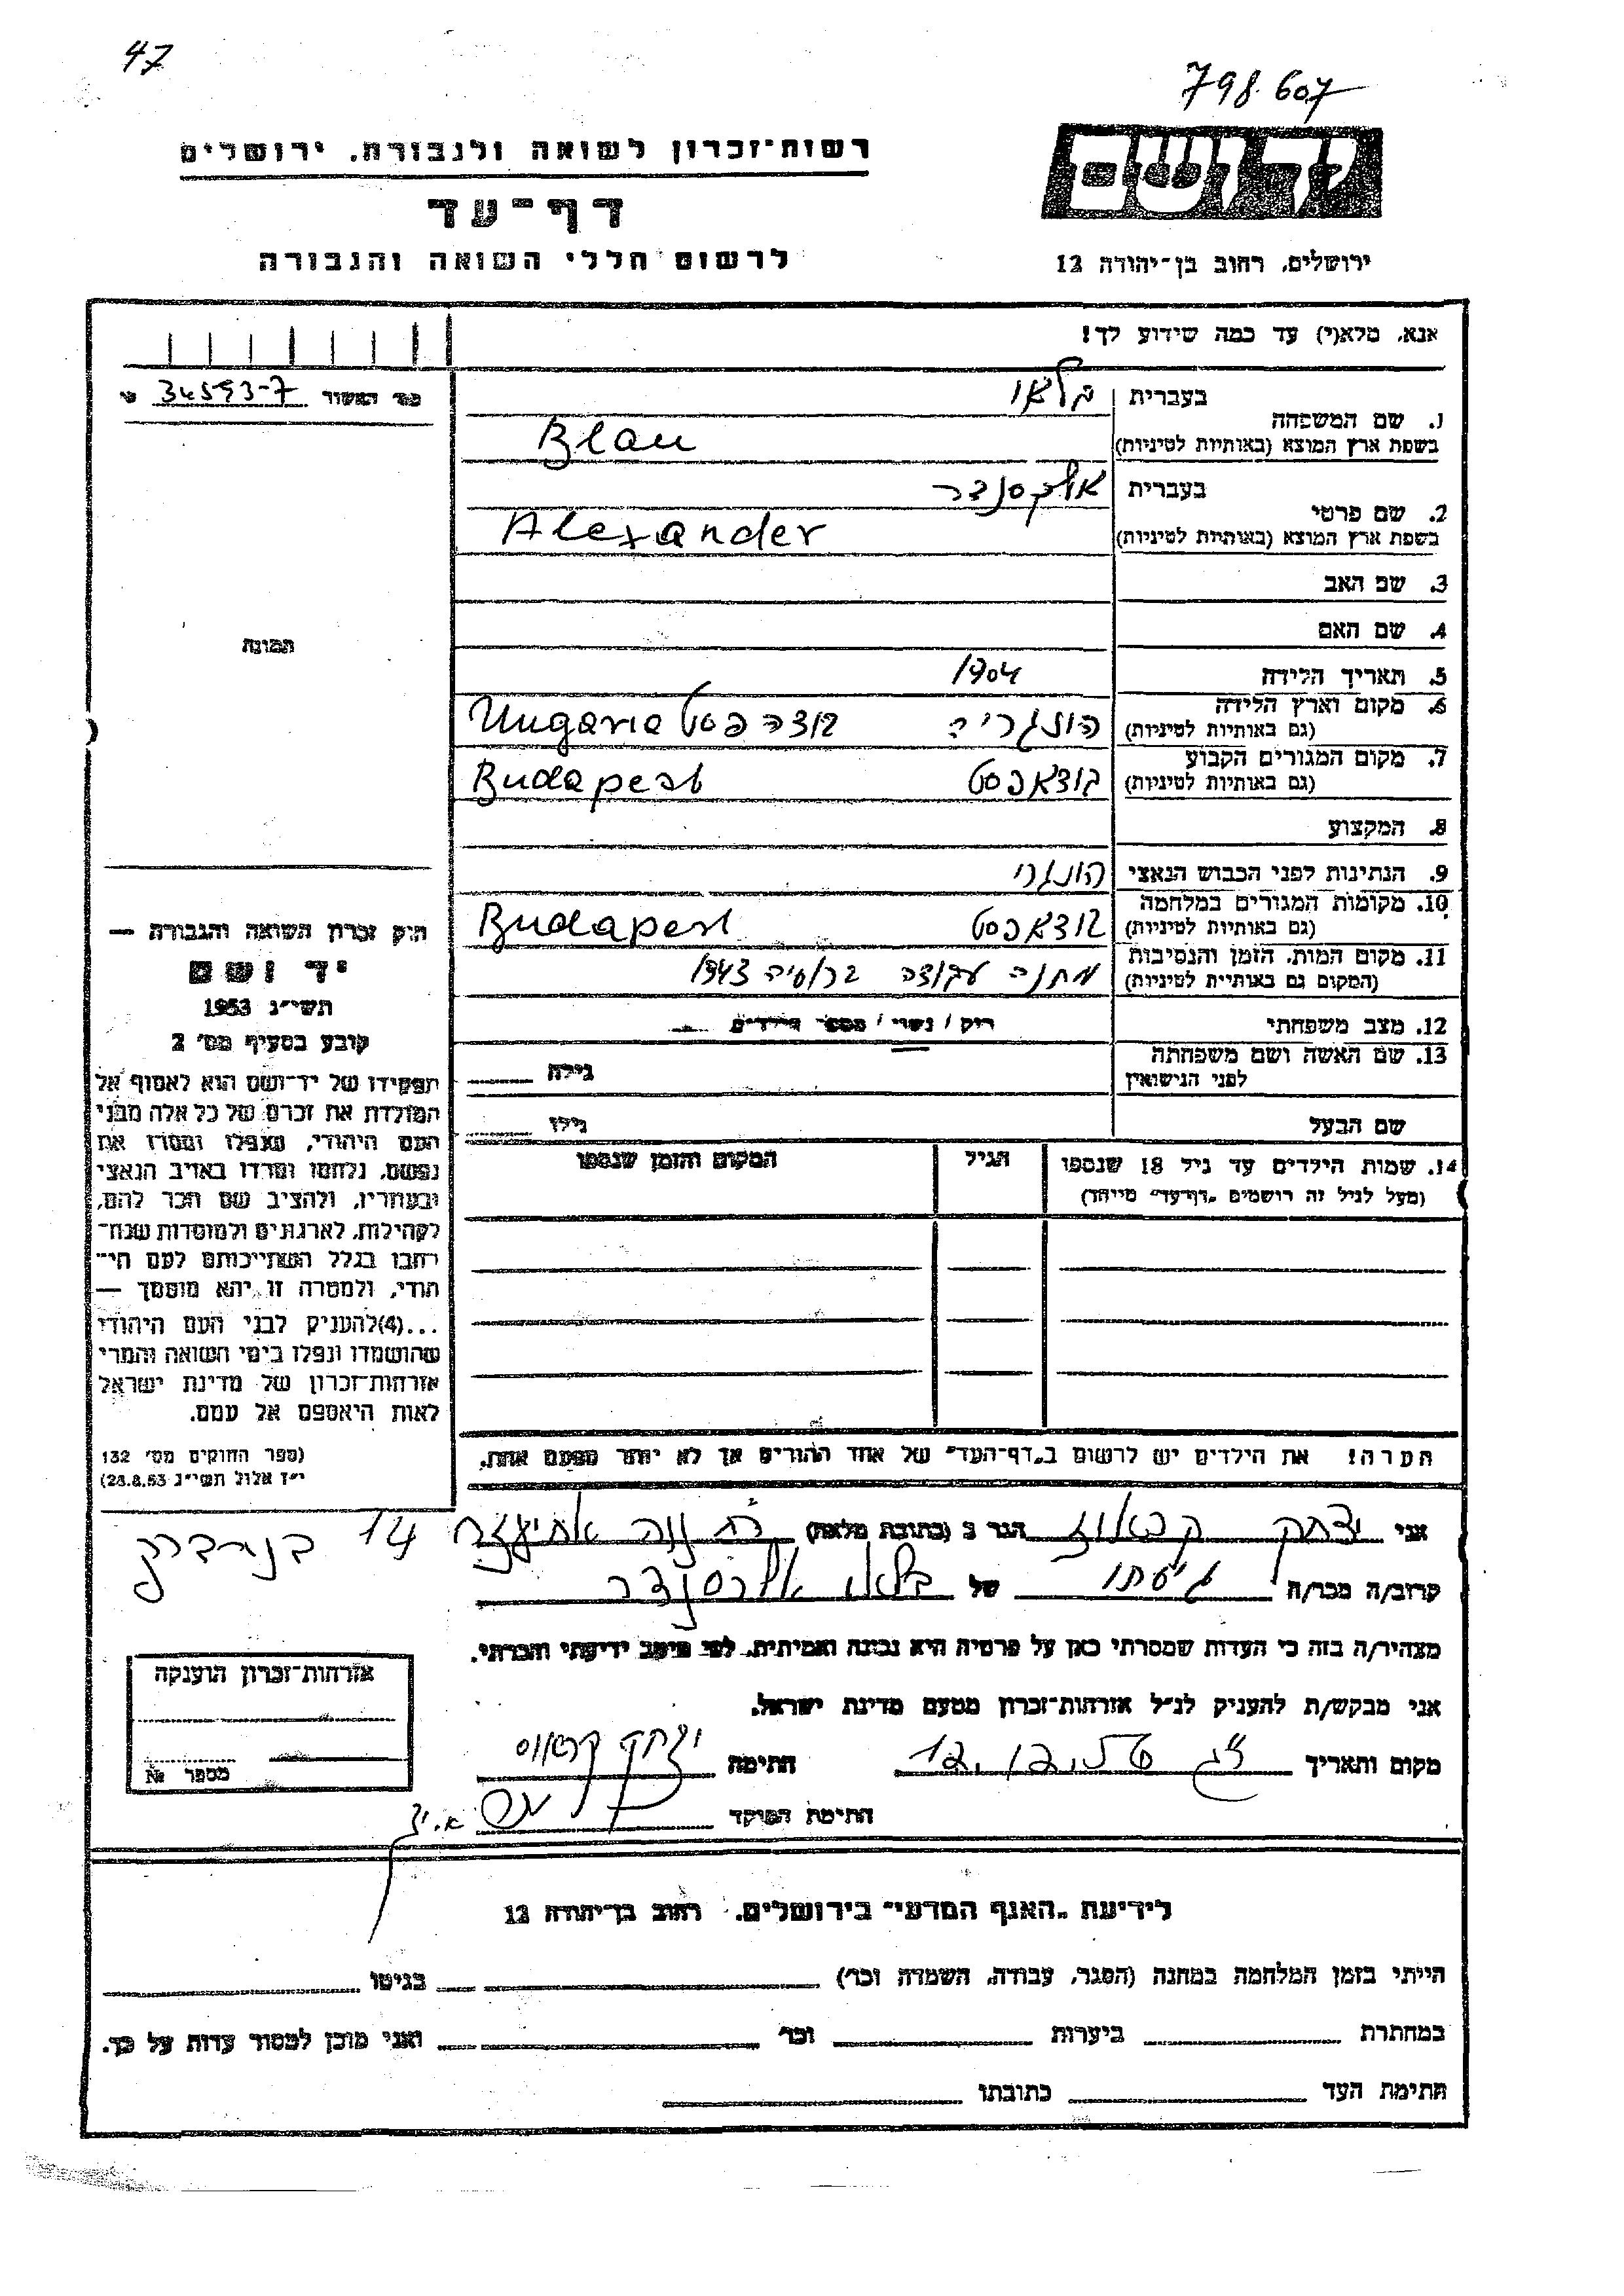 47
798607
יד ושם
רשות־זכרון לשואה ולגבורה, ירושלים
דף־עד
לרשום חללי השואה והגבורה
ירושלים, רחוב בן־יהודה 12
אנא, מלא(י) עד כמה שידוע לך!
מס׳ האשור 34593-7
תמונה
1. שם המשפחה
בעברית בלאו
בשפת ארץ המוצא (באותיות לטיניות) Blau
2. שם פרטי
בעברית אלכסנדר
בשפת ארץ המוצא (באותיות לטיניות) Alexander
3. שם האב
4. שם האם
5. תאריך הלידה 1904
6. מקום וארץ הלידה
(גם באותיות לטיניות) הונגריה בודה פסט Ungaria
7. מקום המגורים הקבוע
(גם באותיות לטיניות) בודאפסט Budapest
8. המקצוע
9. הנתינות לפני הכבוש הנאצי הונגרי
10. מקומות המגורים במלחמה
(גם באותיות לטיניות) בודאפסט Budapest
11. מקום המות, הזמן והנסיבות
(המקום גם באותיית לטיניות) מחנה עבודה ברוסיה 1943
12. מצב משפחתי רוק / נשוי / מספר הילדים
13. שם האשה ושם משפחתה
לפני הנישואין גילה
שם הבעל גילו
14. שמות הילדים עד גיל 18 שנספו הגיל המקום והזמן שנספו
(מעל לגיל זה רושמים „דף־עד” מייחד)
הערה! את הילדים יש לרשום ב„דף־העד” של אחד ההורים אך לא יותר מפעם אחת.
חוק זכרון השואה והגבורה —
יד ושם
תשי״ג 1953
קובע בסעיף מס׳ 2
תפקידו של יד־ושם הוא לאסוף אל
המולדת את זכרם של כל אלה מבני
העם היהודי, שנפלו ומסרו את
נפשם, נלחמו ומרדו באויב הנאצי
ובעוזריו, ולהציב שם וזכר להם,
לקהילות, לארגונים ולמוסדות שנח־
רבו בגלל השתייכותם לעם הי־
הודי, ולמטרה זו יהא מוסמך —
...(4)להעניק לבני העם היהודי
שהושמדו ונפלו בימי השואה והמרי
אזרחות־זכרון של מדינת ישראל
לאות היאספם אל עמם.
(ספר החוקים מס׳ 132
י״ז אלול תשי״ג 28.8.53)
אני יצחק קראוס הגר ב (כתובת מלאה) אחיעזר 14 בני ברק
קרוב/ה מכר/ה גיסתו של בלאו אלכסנדר
מצהיר/ה בזה כי העדות שמסרתי כאן על פרטיה היא נכונה ואמיתית, לפי מיטב ידיעתי והכרתי.
אני מבקש/ת להעניק לנ״ל אזרחות־זכרון מטעם מדינת ישראל.
מקום ותאריך חתימה יצחק קראוס
חתימת הפוקד
אזרחות־זכרון הוענקה
מספר №
לידיעת „האגף המדעי” בירושלים, רחוב בן־יהודה 12
הייתי בזמן המלחמה במחנה (הסגר, עבודה, השמדה וכו׳) בגיטו
במחתרת ביערות וכו׳ ואני מוכן למסור עדות על כך.
חתימת העד כתובתו